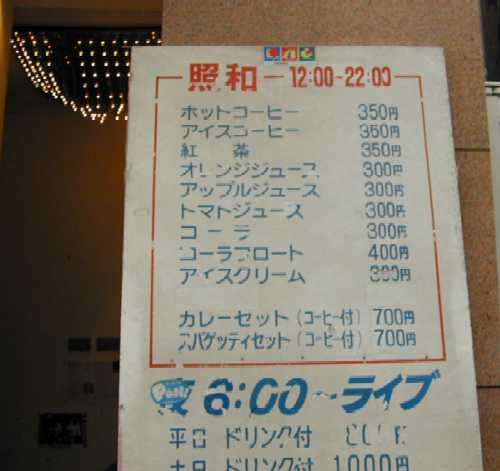 照和 12:00-22:00
ホットコーヒー 350円
アイスコーヒー 350円
紅茶 350円
オレンジジュース 300円
アップルジュース 300円
トマトジュース 300円
コーラ 300円
コーラフロート 400円
アイスクリーム 300円
カレーセット(コーヒー付) 700円
スパゲッティセット(コーヒー付) 700円
6:00〜ライブ
平日 ドリンク付
土日 ドリンク付 1000円